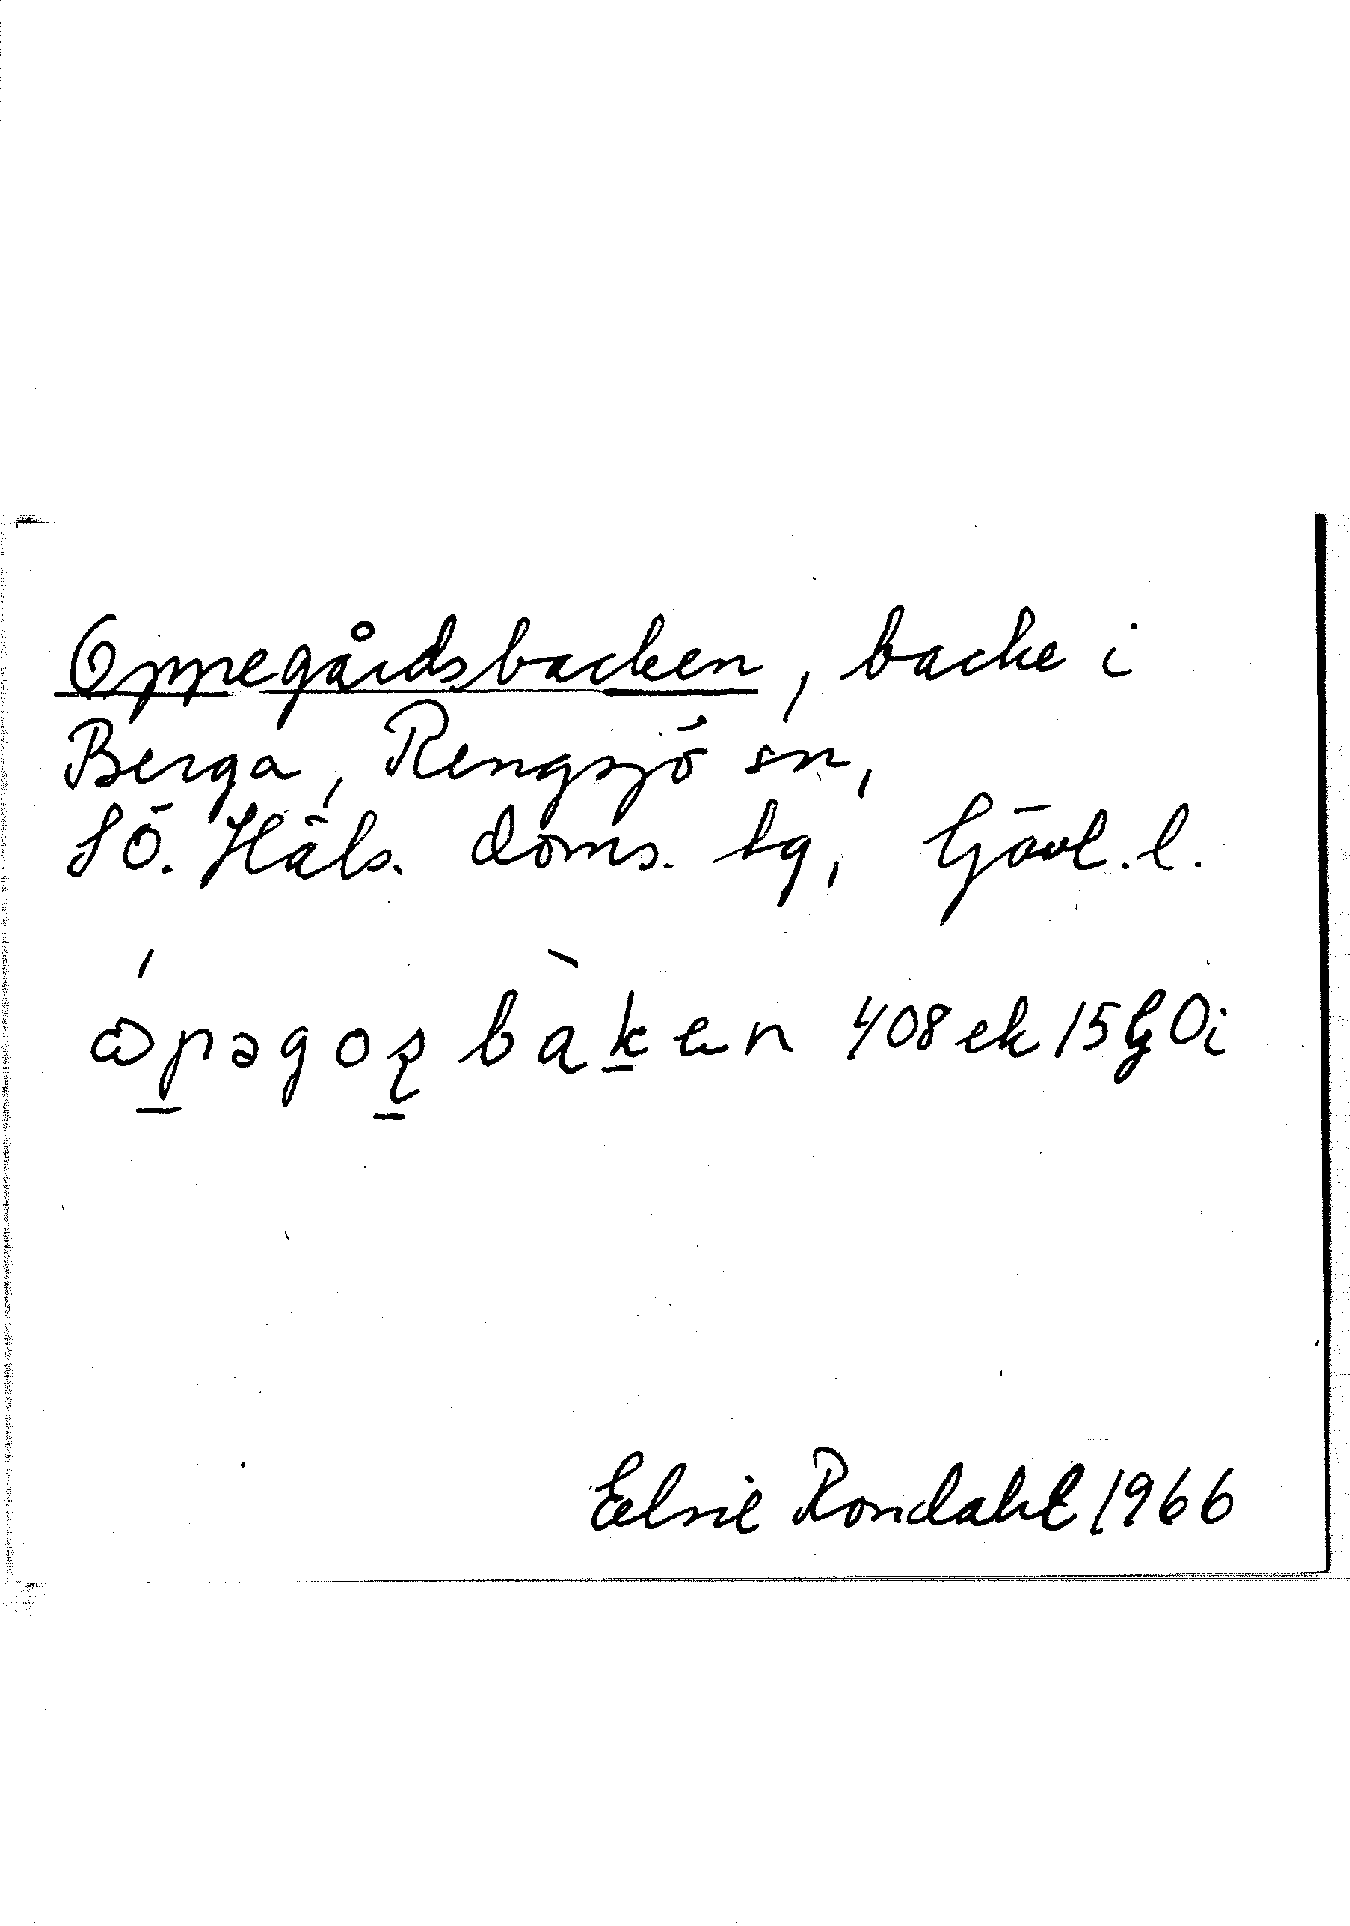 Oppegårdsbacken, backe i
Berga, Rengsjö sn,
Sö. Häls. doms. tg, Gävl. l.
408 ek 15 G Oi
Elsie Rondahl 1966